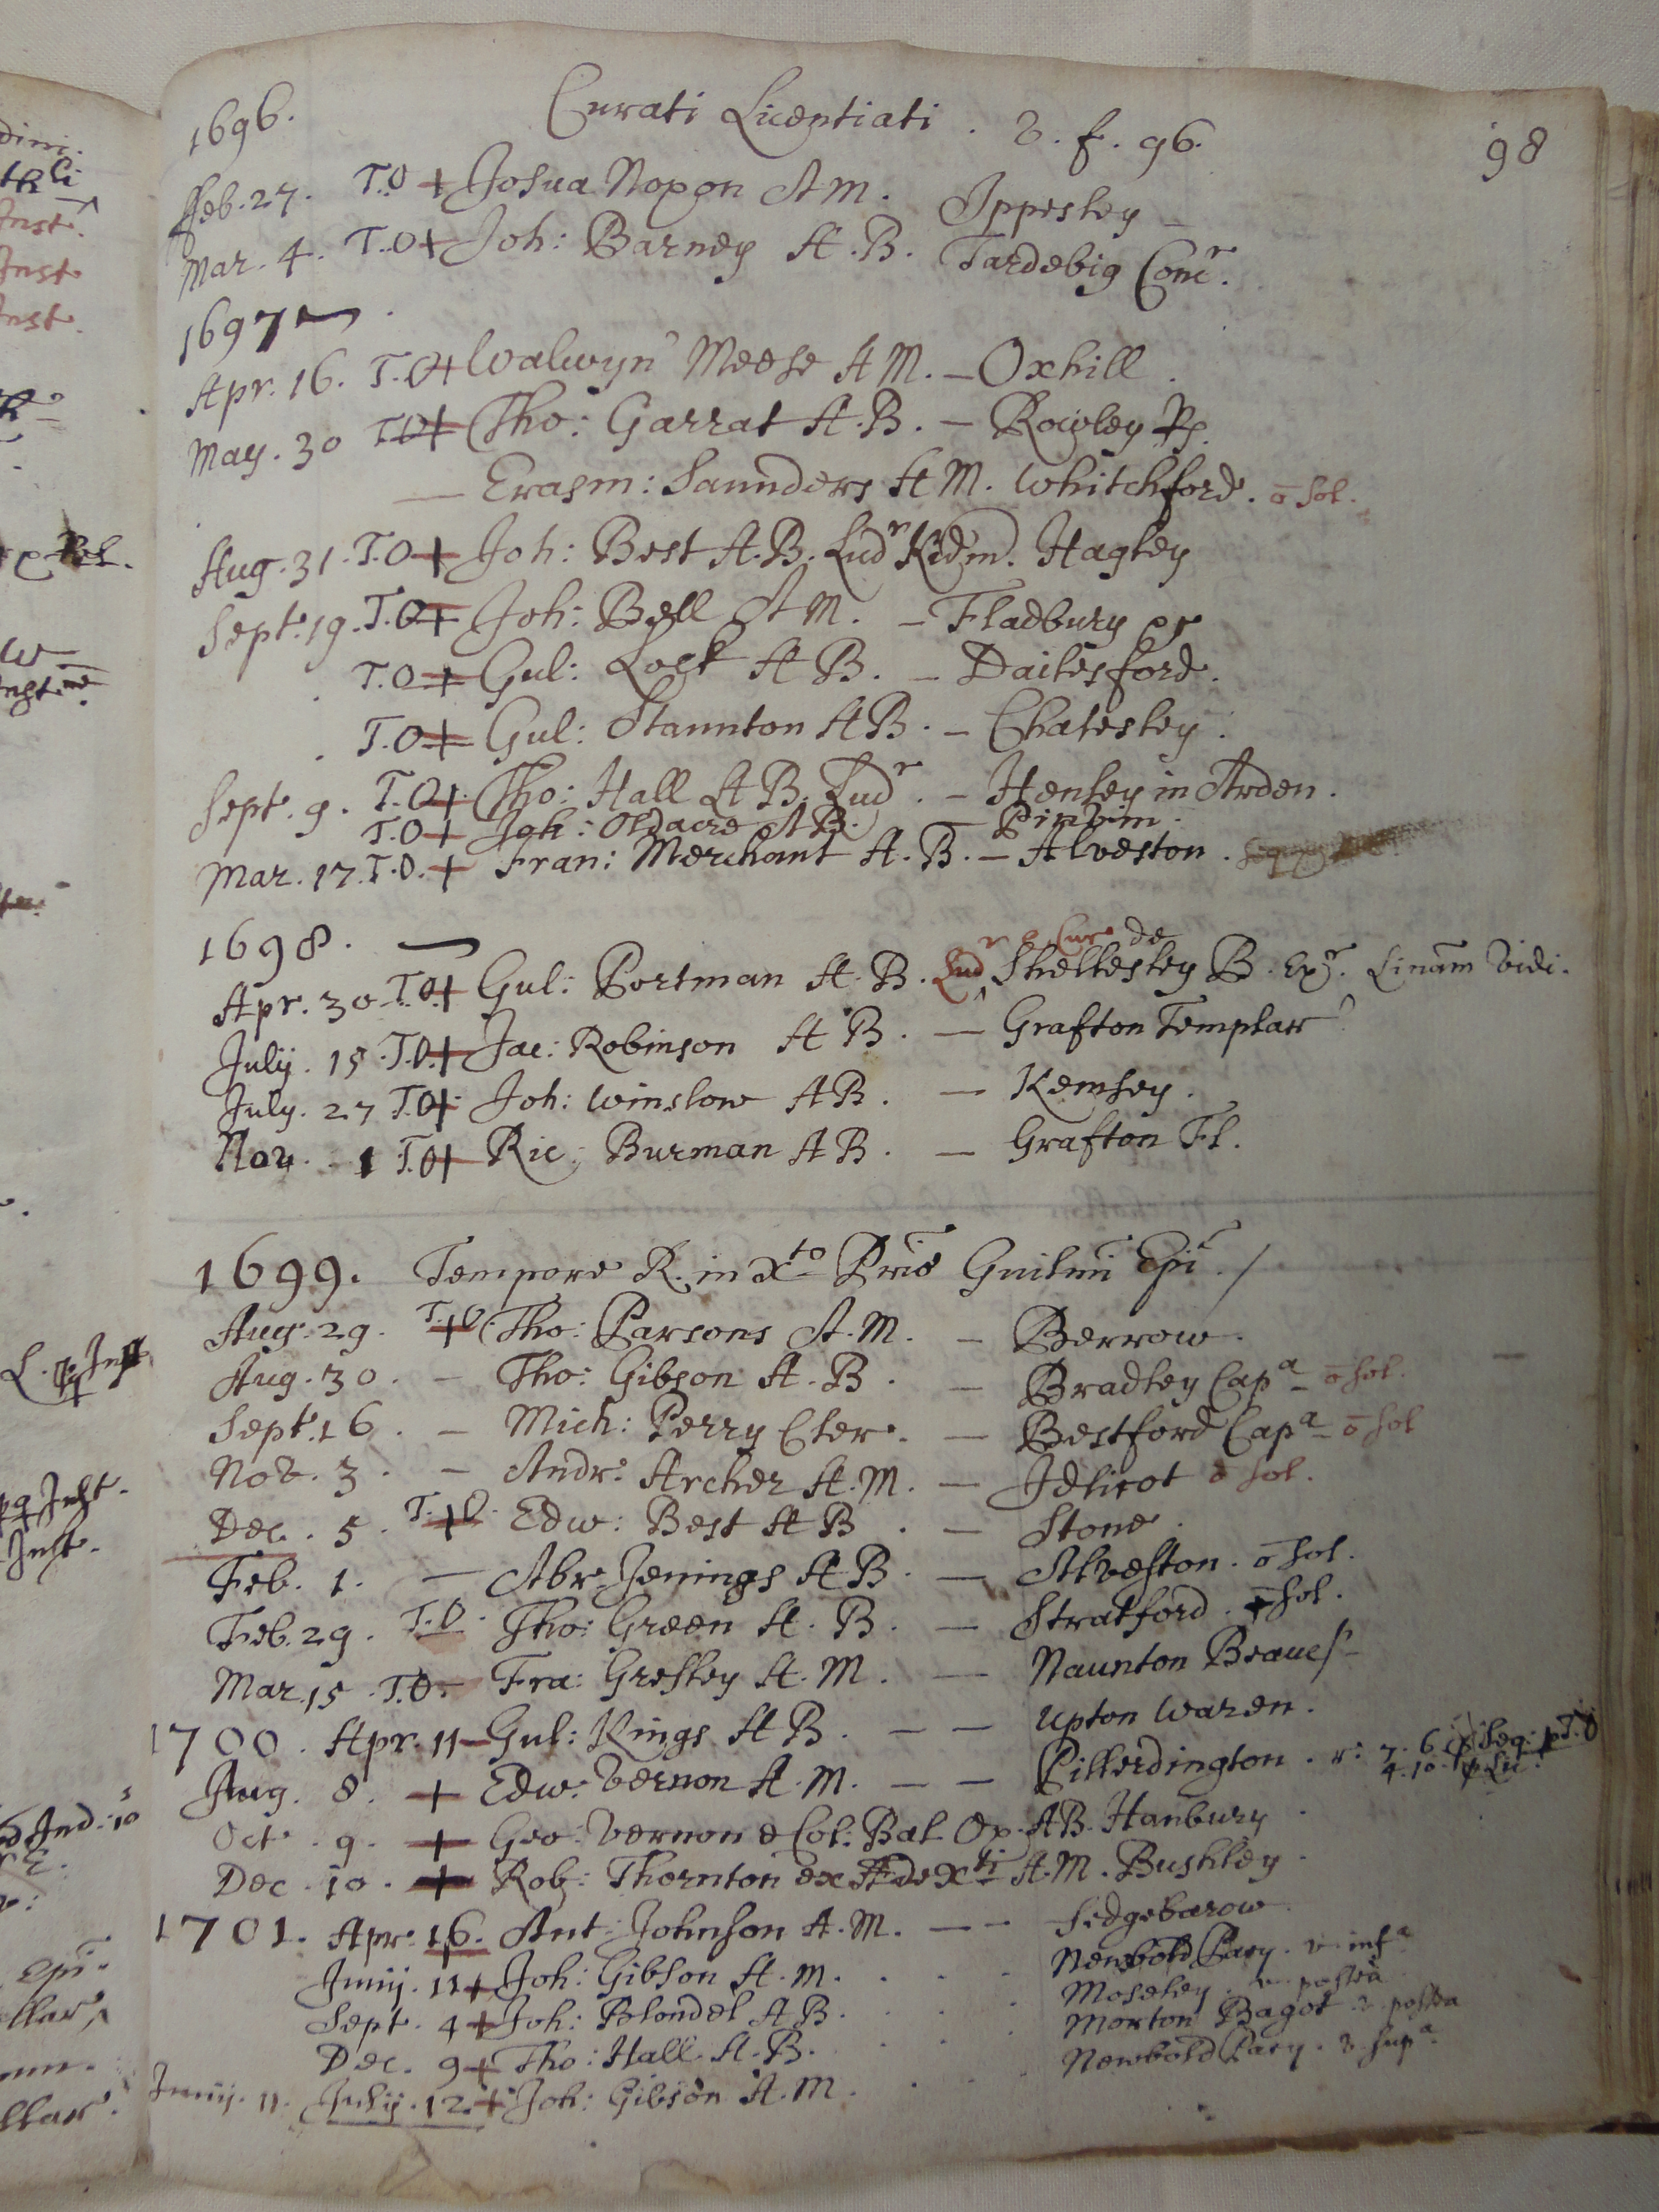 1696. Curati Licentiati . v. f. 96. 98
Feb. 27. T.O + Josua Noxon A M. Ippesley
Mar. 4. T.O + Joh: Barney A.B. Tardebig Conc^r.
1697
Apr. 16. T.O + Walwyn Meese A M. – Oxhill.
May. 30 T.O + Tho: Garrat A.B. – Rowley R.
— Erasm: Saunders A M. Whitchford. ō sol.
Aug. 31. T.O + Joh: Best A.B. Lud^r Kidm. Hagley
Sept. 19. T.O + Joh: Bell A M. – Fladbury
T.O + Gul: Lock A B. – Dailesford.
T.O + Gul: Staunton A B. – Chatesley.
Sept. 9. T.O + Tho: Hall A B. Lud^r. – Henley in Arden.
T.O + Joh: Oldacre A B. – Pirvin.
Mar. 17. T.O. + Fran: Merchant A.B. – Alveston.
1698.
Apr. 30 T.O + Gul: Portman A.B. Lud^r & Cur de Shellesley B. Ex^r. Linam vidi.
July. 15. T.O + Jac: Robinson A B. — Grafton Templar
July. 27 T.O + Joh: Winslow A B. — Kemsey.
Nov. 1 T.O + Ric: Burman A B. — Grafton Fl.
1699. Tempore R. in X^to Pris Guilmi Epi. /
Aug. 29. T.+O. Tho: Parsons A.M. – Berrow.
Aug. 30. – Tho: Gibson A.B. – Bradley Cap^a – ō sol.
Sept. 16. – Mich: Perry Cler. – Bestford Cap^a – ō sol
Nov. 3. – Andr: Archer A.M. – Idlicot ō sol.
Dec. 5. T.+O. Edw: Best A B. – Stone.
Feb. 1. — Abr. Jenings A B. — Alveston. ō sol.
Feb. 29. T.O. Tho: Green A.B. — Stratford. sol.
Mar. 15. T.O. Fra: Gresley A.M. — Naunton Beauc
1700. Apr. 11 – Gul: Kings A B. – – Upton Waren.
Aug. 8. + Edw: Vernon A.M. – – Pillerdington.
Oct. 9. + Geo: Vernon e Col: Bal Ox. A B. Hanbury
Dec. 10. + Rob: Thornton ex Æde X^ti A.M. Bushley
1701. Apr. 16. Ant: Johnson A.M. – – Sedgebarow
Junij. 11 + Joh: Gibson A.M. . . . Newbold Pacy. v. inf^a
Sept. 4 + Joh: Blondel A B. . . . Moseley. v. postea
Dec. 9 + Tho: Hall A.B. . . . Morton Bagot v. postea
Junij. 11. Julij. 12. + Joh: Gibson A.M. . . . Newbold Pacy. v. sup^a